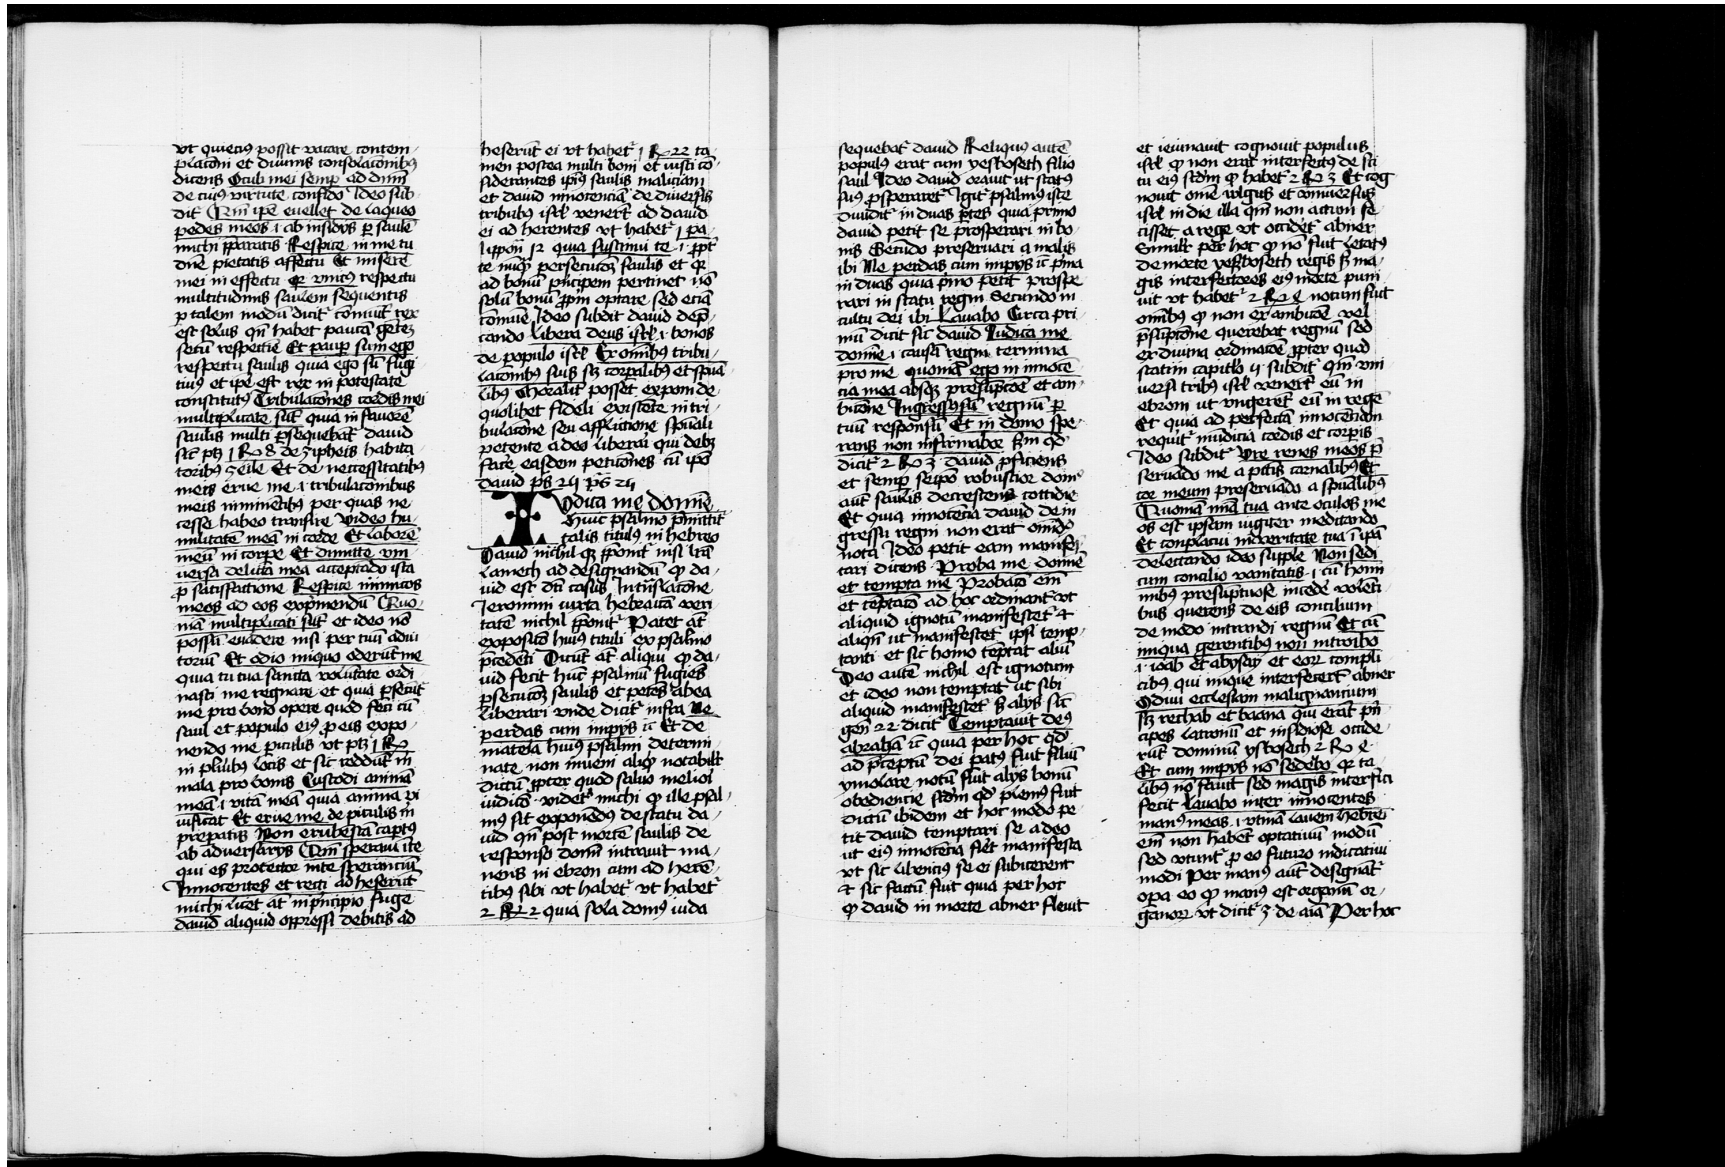 vt quietius possit vacare contem-
placōni et diuinis consolacōnibꝰ
dicens Oculi mei semp ad dn̄m
de cuiꝰ virtute confido Ideo sub-
dit Qm̄ ipē euellet de laqueo
pedes meos .i. ab insidijs p saulē
michi p̄paratis Respice in me tu
dn̄e pietatis affectu Et miserē
mei in effectu qr vnicꝰ respectu
multitudinis saulem sequentis
p talem modū dicit᷑ cōmuīt᷑ rex
est solus qn̄ habet paucā gētē
secū respectiue Et paup sum ego
respectu saulis quia ego sū fugi
tiuꝰ et ipē est rex in potestate
constitutꝰ Tribulacōnes cordis mei
multiplicate sūt quia in fauorē
saulis multi p̄sequebāt᷑ dauid
sic ptꝫ 1 R 8 de zipheis habita
toribꝰ ceile Et de necessitatibꝰ
meis erue me .i. tribulaconibus
meis iminentibꝰ per quas ne
cesse habeo transire Vide hu-
militatē meā in corde Et laborē
meū in corpe Et dimitte vni
uersa delicta mea acceptādo ista
p satisfactione Respice inimicos
meos ad eos exp̄mendū Quo-
niā multiplicati sūt et ideo nō
possū euadere nisi per tuū adiu
toriū Et odio iniquo oderūt me
quia tu tua sancta volūtate ordi
nasti me regnare et quia p̄secūt᷑
me pro bono opere quod feci cū
saul et populo eiꝰ p eis expo-
nendo me piculis vt ptꝫ 1 R
in plribꝰ locis et sic reddūt᷑ in
mala pro bonis Custodi animā
meā .i. vitā meā quia anima vi
uificat Et erue me de piculis in
preparatis Non erubescā captꝰ
ab aduersarijs Qm̄ speraui ī te
qui es protector in te sperantiū
Innocentes et recti adheserūt
michi licet at̄ in p̄ncipio fuge
dauid aliquid oppressi debitis ad
heserūt ei vt habet᷑ 1 R 22 ta-
men postea multi boni et iusti cō
siderantes ipiꝰ saulis maliciam
et dauid innocenciā de diuersis
tribubꝰ isrl venerūt ad dauid
ei ad herentes vt habet᷑ 1 pa-
lippon̄ 12 quia sustinui te .i. p̄pt᷑
te iniq̄ persecucōꝫ saulis et qr
ad bonū p̄ncipem pertinet nō
solū bonū p̄p̄m optare sed etiā
cōmune Ideo subdit dauid dep̄-
cando Libera deus isrl .i. bonos
de populo isrl Ex omnibꝰ tribu-
lacōnibꝰ suis sꝫ corpalibꝰ et spūa
libꝰ Moralit᷑ posset exponi de
quolibet fideli existēte in tri-
bulacōne seu afflictione spūali
petente a deo liberari qui debꝫ
facē easdem peticōnes cū ipō
dauid ps 24 ps 24
Iudica me domīne
Huic psalmo p̄mittit᷑
talis titulꝰ in hebreo
Dauid nichil qꝫ p̄ponit᷑ nisi lrā
lamech ad designandū qꝫ da-
uid est dt̄i casus In trāslacōne
Jeronimi iuxta hebraicā veri
tatē nichil p̄ponit᷑ Patet at̄
exposicō huiꝰ tituli ex psalmo
p̄cedēti Dicūt at̄ aliqui qꝫ da-
uid fecit hūc psalmū fugiēs
p̄secucōꝫ saulis et petēs a dea
liberari vnde dicit᷑ infra Ne
perdas cum impijs ic̄ Et de
materia huiꝰ psalmi determi-
nate non inueni aliqꝫ notabilit᷑
dictū p̄pter quod saluo meliori
iudicio videt᷑ michi qꝫ ille psal-
mꝰ sit exponēdꝰ de statu da-
uid qn̄ post mortē saulis de
responso domī intrauit ma-
nens in ebron cum ad herē-
tibꝰ sibi vt habet᷑ vt habet᷑
2 R 2 quia sola domꝰ iuda
sequebat᷑ dauid Reliquꝰ autē
populꝰ erat cum ysboseth filio
saul Ideo dauid orauit ut statꝰ
suꝰ p̄speraret᷑ Igit᷑ psalmꝰ iste
diuidit᷑ in duas p̄tes quia primo
dauid petit se prosperari in bo-
nis Secūdo preseruari a malis
ibi Ne perdas cum impijs ic̄ p̄ma
in duas quia p̄mo petit prospe
rari in statu regni Secundo in
cultu dei ibi Lauabo Circa pri-
mū dicit sic dauid Iudica me
domīne .i. causā regni termina
pro me quoniā ego in innocē
cia mea absqꝫ presūpcōe et am-
bicōne Ingressꝰ sū regnū p
tuū responsū Et in domo spe-
rans non infirmabor Sm̄ qd
dicit᷑ 2 R 3 dauid p̄ficiens
et semp seipō robustior domꝰ
aut saulis decrescens cottidie
Et quia innocēcia dauid de in
gressu regni non erat omībꝰ
nota Ideo petit eam manifes-
tari dicens Proba me domīne
et tempta me Probacō em̄
et tēptacō ad hoc ordinant᷑ vt
aliquid ignotū manifestet᷑ et
aliqn̄ ut manifestet᷑ ipsi temp-
tanti et sic homo tēptat aliū
Deo autē nichil est ignotum
et ideo non temptat ut sibi
aliquid manifestet᷑ sꝫ alijs sic
gen̄ 22 dicit᷑ Temptauit deꝰ
abrahā ic̄ quia per hoc qd
ad p̄ceptū dei patꝰ fuit filiū
ymolare notū fuit alijs bonū
obediencie scdm qd pleniꝰ fuit
dictū ibidem et hoc modo pe-
tit dauid temptari se a deo
ut eiꝰ innocēcia fi̇et manifesta
vt sic liberiꝰ se ei subicerent
et sic factū fuit quia per hoc
qꝫ dauid in morte abner fleuit
et ieiunauit cognouit populus
isrl qꝫ non erat interfectꝰ de sci
tu eiꝰ scdm qꝫ habet᷑ 2 R 3 Et cog
nouit omē vulgus et vniuersꝰ
isrl in die illa qm̄ non actum fu
isset a rege vt occidet᷑ abner
Similit᷑ per hoc qꝫ nō fuit letatꝰ
de morte ysboseth regis sꝫ ma-
gis interfectores eiꝰ morte puni
uit vt habet᷑ 2 R 4 notum fuit
omībꝰ qꝫ non ex ambicōe vel
p̄supcōne querebat regnū sed
ex diuina ordinacōe p̄pter quod
statim capitlo 4 subdit᷑ qm̄ vni
uersi tribus isrl venerūt eū in
ebron ut vngerēt eū in regē
Et quia ad perfectā innocenciā
requirit᷑ mūdicia cordis et corpis
Ideo subdit᷑ Vre renes meos p̄
seruādo me a pctis carnalibꝰ Et
cor meum preseruādo a spūalibꝰ
Quoniā mīa tua ante oculos me
os est ipsam iugiter meditando
Et complacui in veritate tua .i. ipā
delectando ideo supple Non sedi
cum concilio vanitatis .i. cū homi
nibꝰ presūptuose incedē volēti-
bus querens de eis concilium
de modo intrandi regnū Et cū
iniqua gerentibꝰ non introibo
.i. ioab et abysay et eoꝝ compli
cibꝰ qui inique interfecerūt abner
Odiui ecclesiam malignantium
sꝫ rechab et baana qui erāt p̄n
cipes latronū et insidiose occide-
rūt dominū ysboseth 2 R 4
Et cum impijs nō sedebo qr ta-
libꝰ nō fauit sed magis interfici
fecit Lauabo inter innocentes
manꝰ meas .i. vtinā lauem hebrei
em̄ non habēt optatiuū modū
sed vtunt᷑ p eo futuro indicatiui
modi Per manꝰ aut̄ designāt᷑
opa eo qꝫ manꝰ est organū or-
ganoꝝ vt dicit᷑ 3 de aīa Per hoc